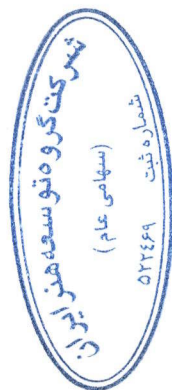 شرکت گروه توسعه هنر ایران
(سهامی عام)
شماره ثبت
۵۲۲۴۶۹